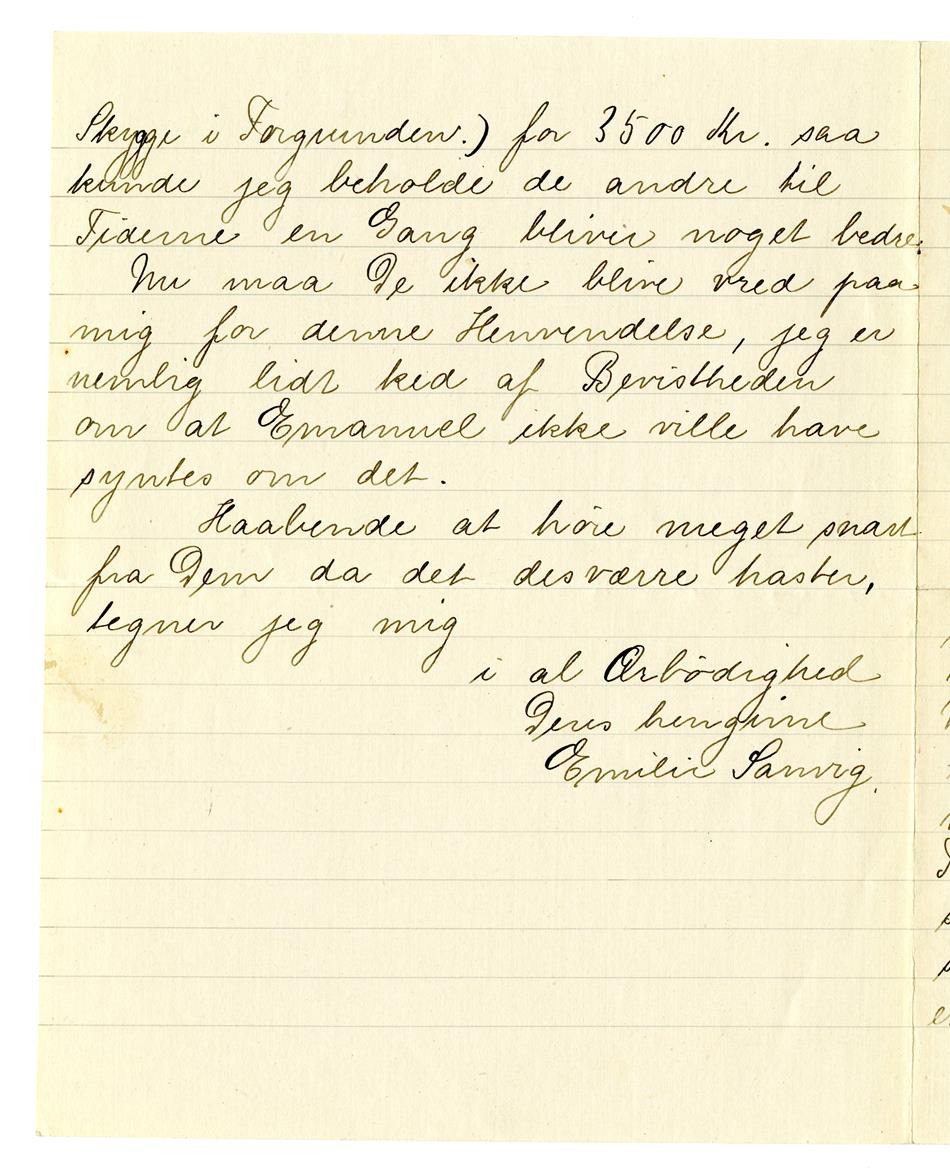 Skygge i Forgrunden.) for 3500 Kr. saa
kunde jeg beholde de andre til
Tiderne en Gang bliver noget bedre.
Nu maa De ikke blive vred paa
mig for denne Henvendelse, jeg er
nemlig lidt ked af Bevistheden
om at Emanuel ikke ville have
syntes om det.
Haabende at höre meget snart
fra Dem da det desværre haster,
tegner jeg mig
i al Ærbödighed
Deres hengivne
Emilie Sanvig.